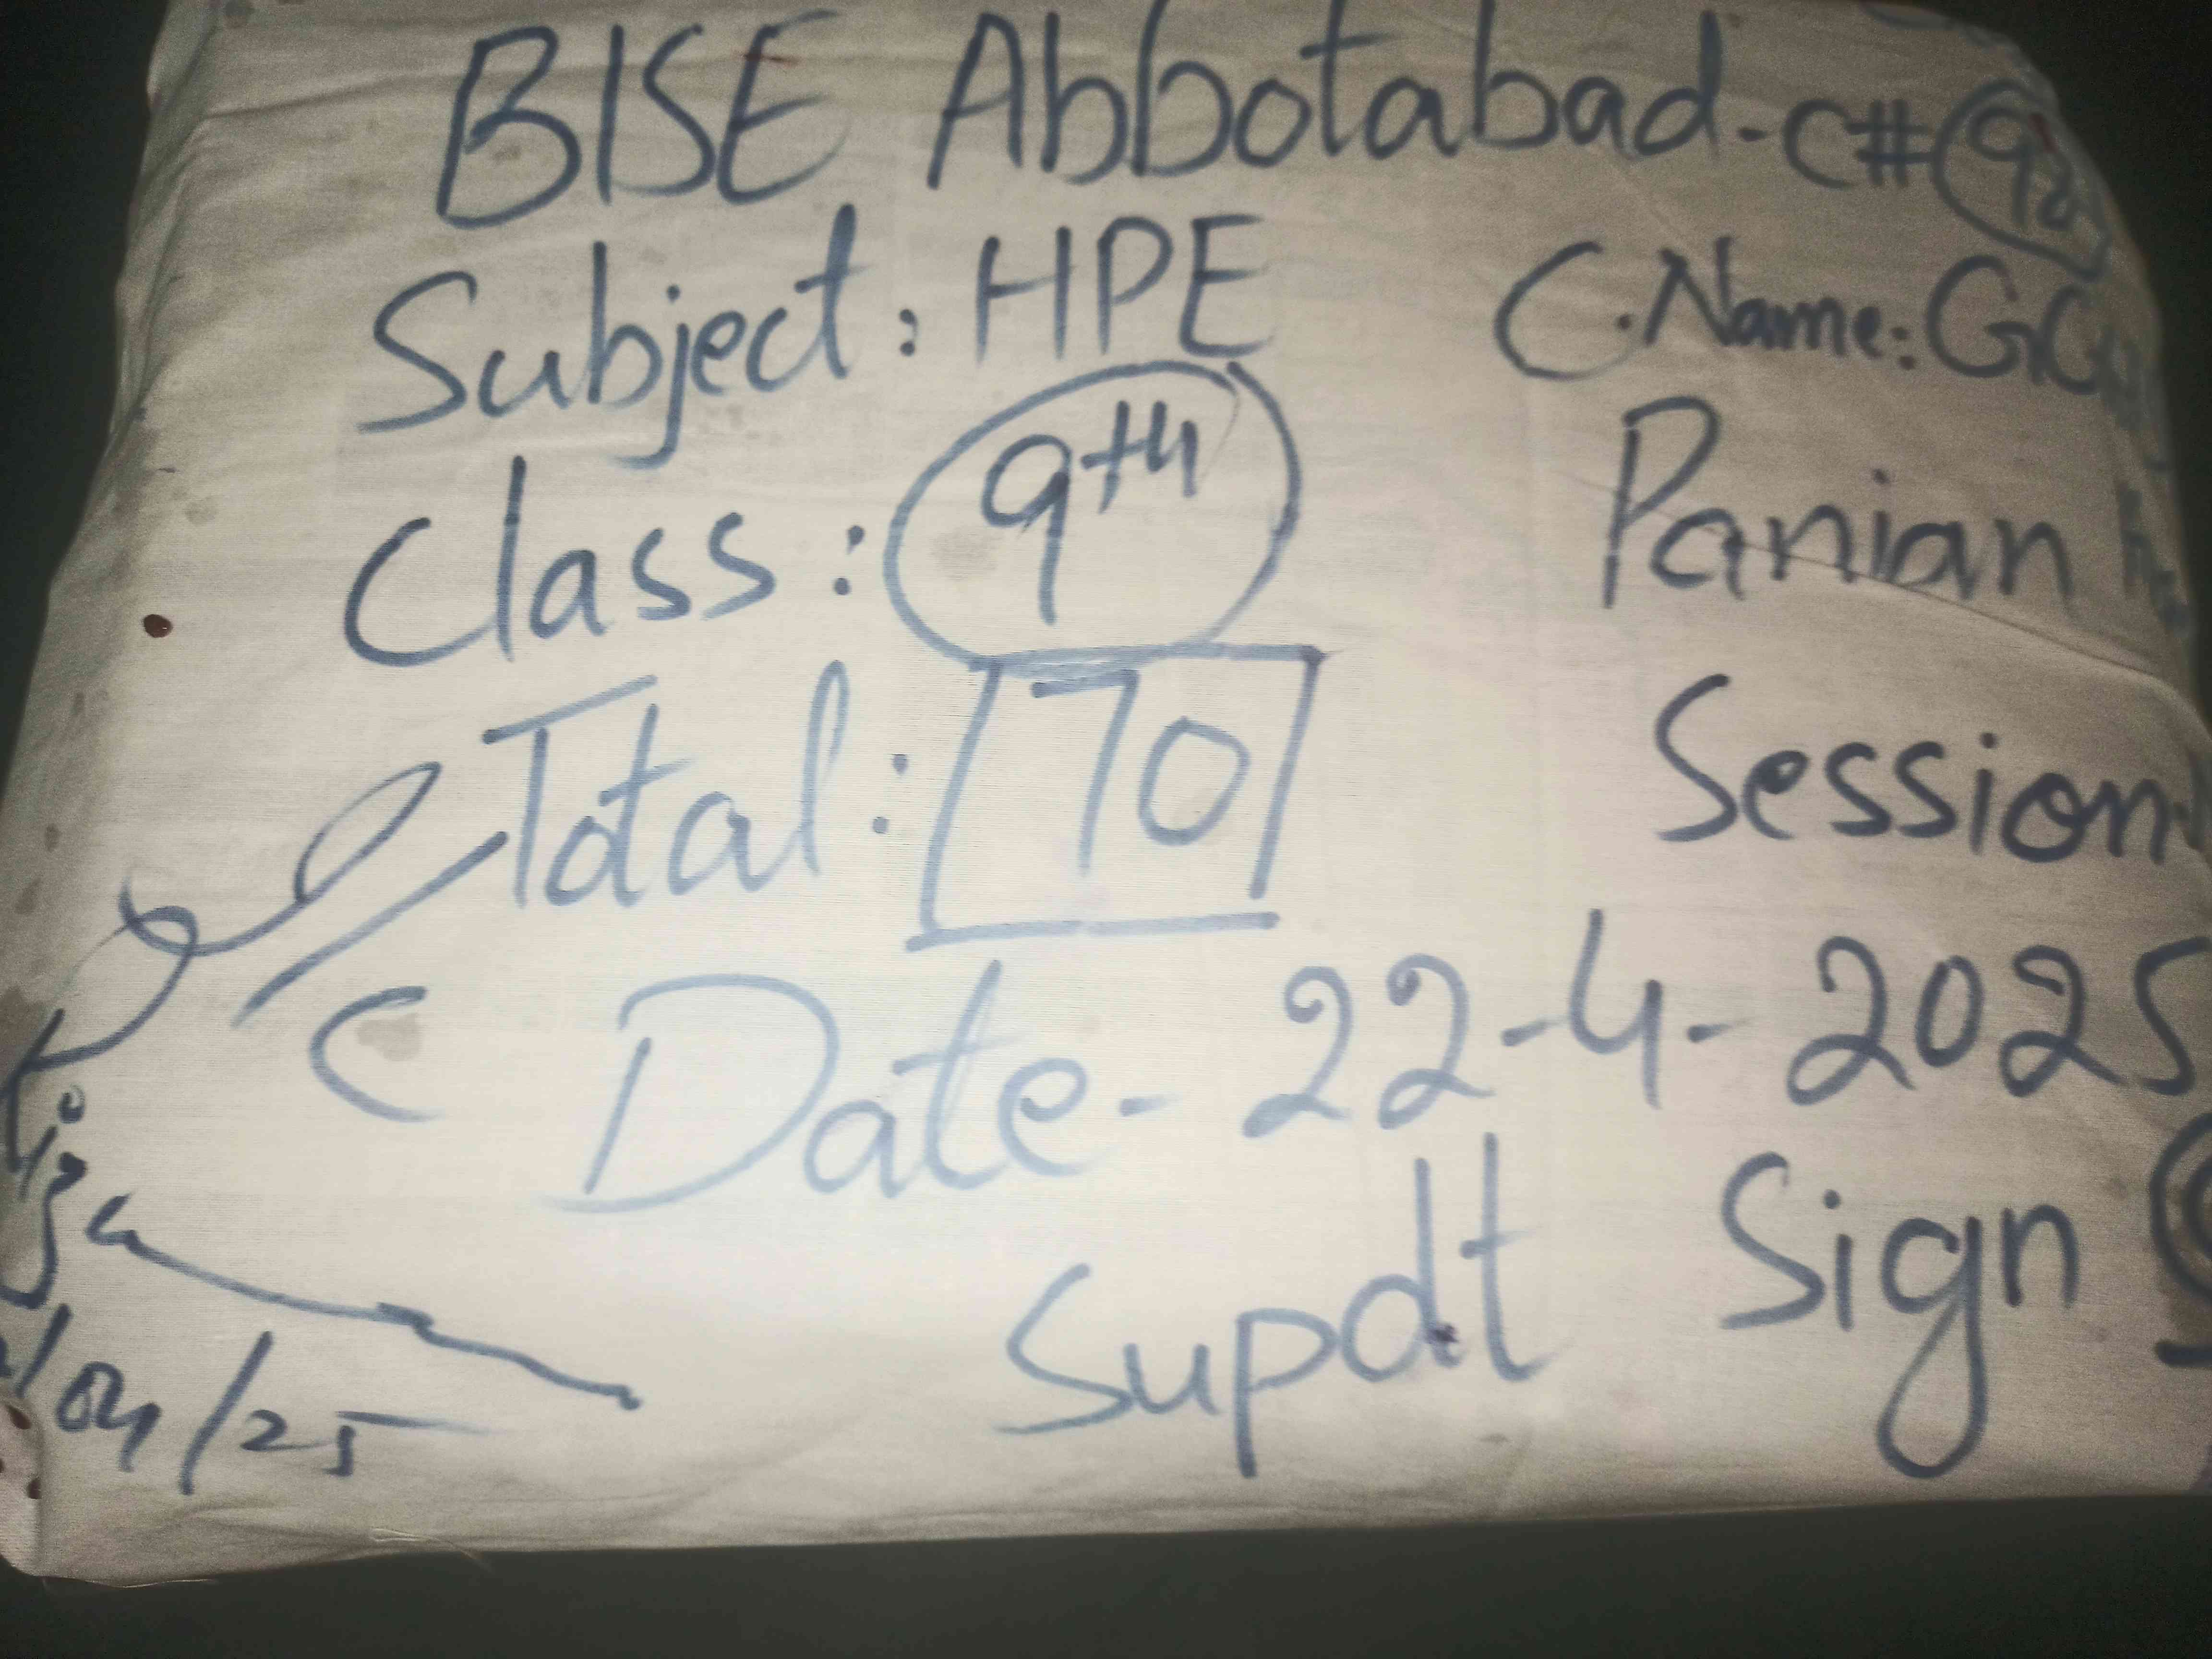 BISE Abbotabad - C# 92
Subject: HPE
C.Name:
Class: 9th
Panian
Total: 70
Session
Date - 22-4-2025
Supdt Sign
/04/25